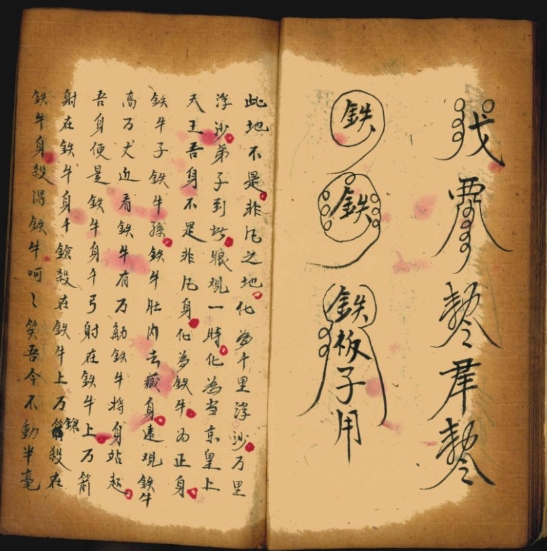 鉄
鉄
鉄板子用
此地不是非凡之地化為千里浮沙万里
浮沙弟子到此眼覌一時化為当京皇上
天王吾身不是非凡身化為鉄牛为正身
鉄牛子鉄牛孫鉄牛肚内去藏身遠覌鉄牛
高万丈近看鉄牛有万觔鉄牛将身站起
吾身便是鉄牛身千弓射在鉄牛上万箭
射在鉄牛身千鎗殺在鉄牛上万鎗殺在
鉄牛身殺得鉄牛呵〻笑吾今不動半毫